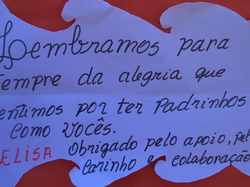 Lembramos para
sempre da alegria que
sentimos por ter Padrinhos
como vocês.
ELISA Obrigado pelo apoio, pelo
Carinho e colaboração